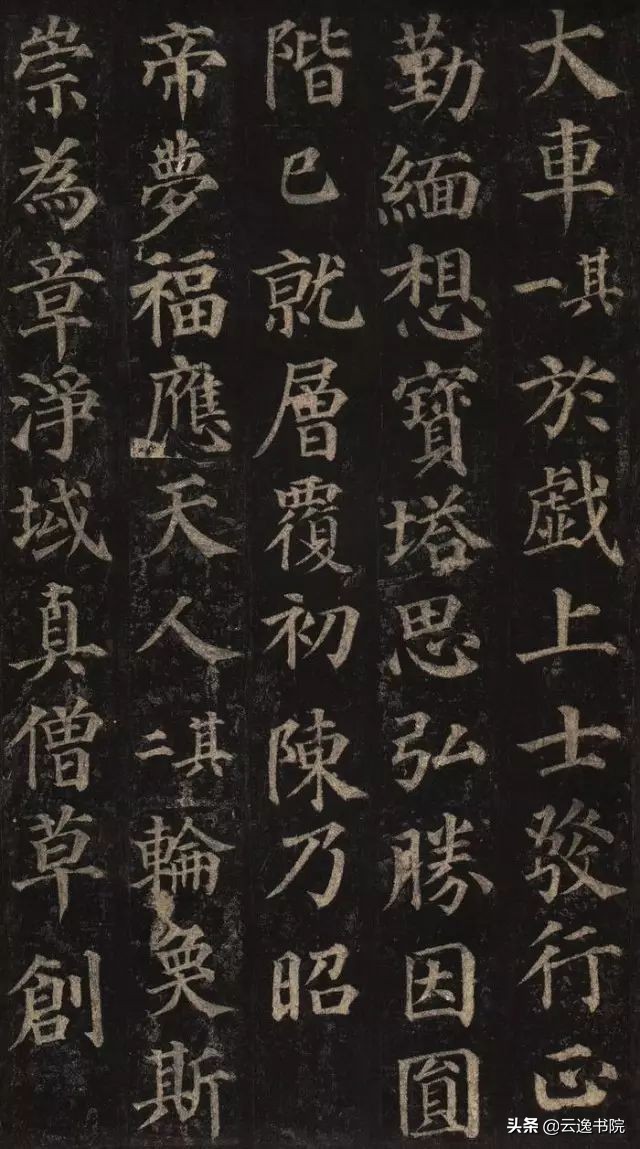 大車其一於戯上士發行正
勤緬想寶塔思弘勝因圓
階已就層覆初陳乃昭
帝夢福應天人其二輪奐斯
崇為章淨域真僧草創
头条 @云逸书院